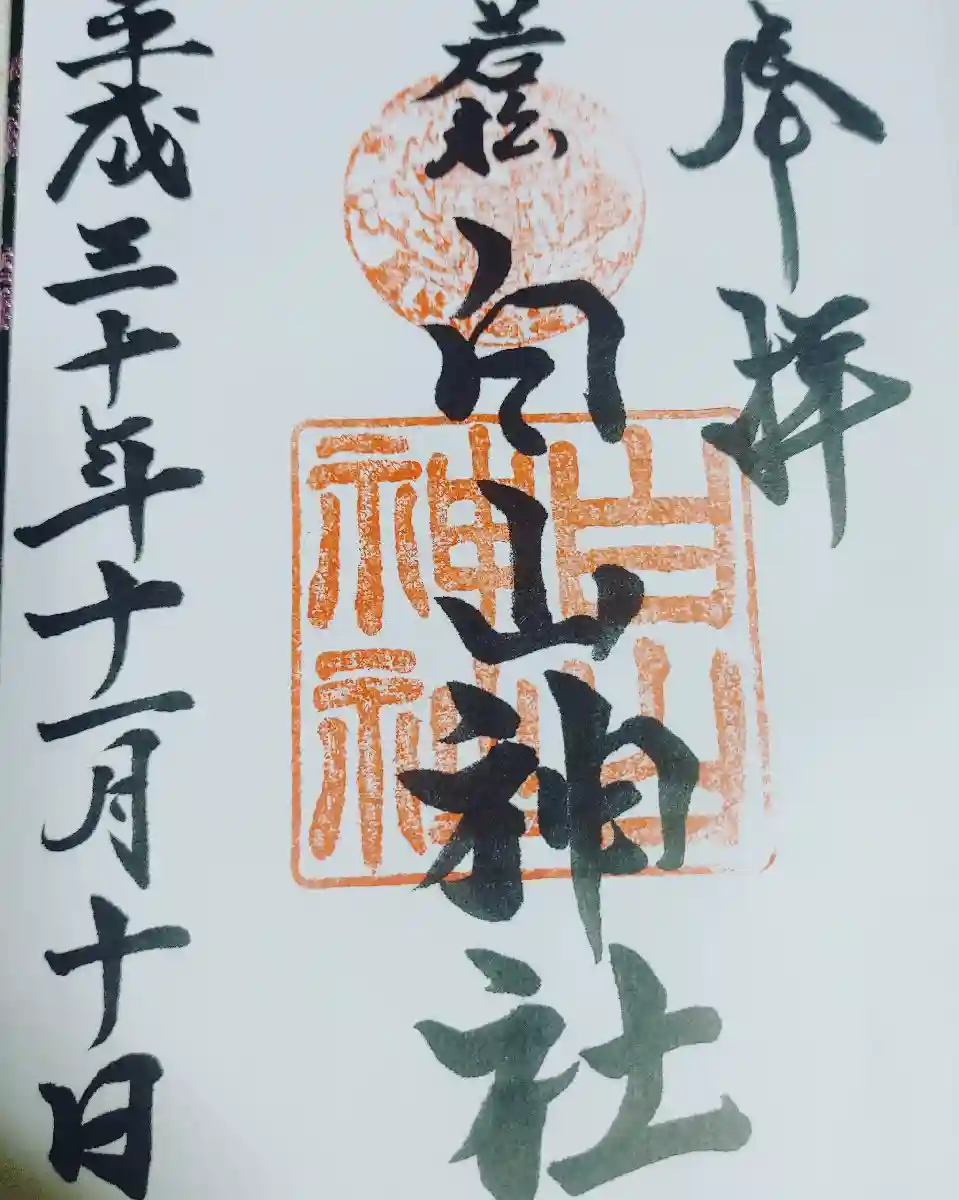 奉拝
若松
白山神社
平成三十年十一月十日
白山神社